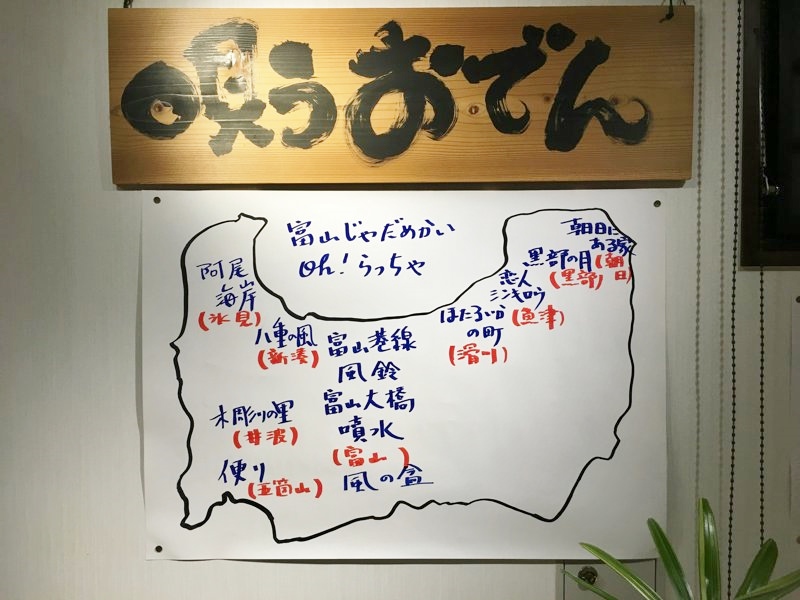 唄うおでん
富山じゃだめかい
Oh! らっちゃ
阿尾
海岸
(氷見)
八重の風
(新湊)
富山港線
風鈴
富山大橋
噴水
(富山)
風の盆
木彫りの里
(井波)
便り
(五箇山)
ほたるいか
の町
(滑川)
恋人
シンキロウ
(魚津)
黒部の月
(黒部)
朝日に
ある家
(朝日)